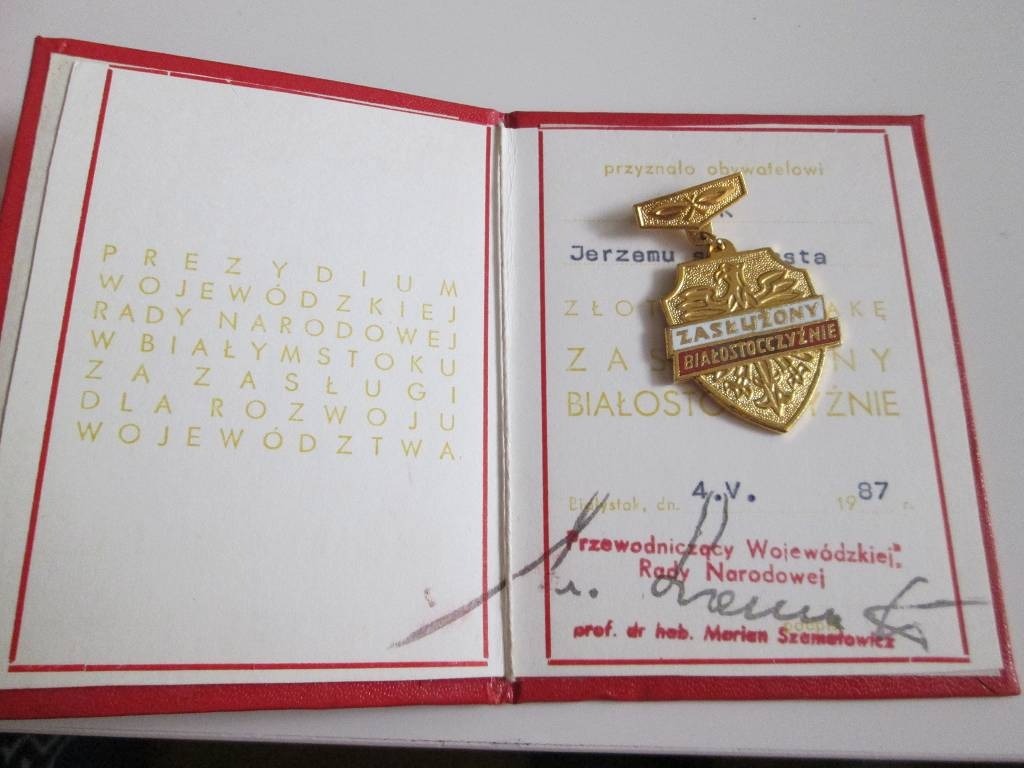 PREZYDIUM
WOJEWÓDZKIEJ
RADY NARODOWEJ
W BIAŁYMSTOKU
ZA ZASŁUGI
DLA ROZWOJU
WOJEWÓDZTWA
przyznało obywatelowi
Jerzemu
ZASŁUŻONY
BIAŁOSTOCCZYŹNIE
Białystok, dn. 4.V. 1987 r.
Przewodniczący Wojewódzkiej
Rady Narodowej
prof. dr hab. Marian Szamatowicz